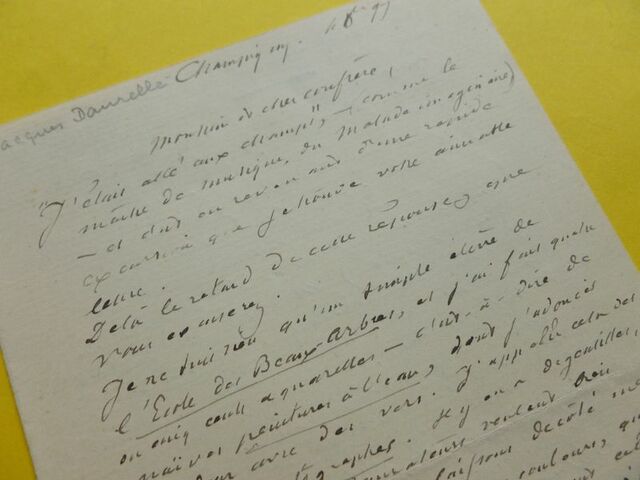 Jacques Daurelle Champigny. 97
Monsieur et cher confrère,
"J'étais allé aux champs", – (comme le
maître de musique, du Malade imaginaire)
– et c'est en revenant d'une rapide
excursion que je trouve votre aimable
lettre.
De là le retard de cette réponse, que
vous excuserez.
Je ne suis rien qu'un simple élève de
l'École des Beaux-Arbres, et j'ai fait quatre
ou cinq cents aquarelles – c'est-à-dire de
naïves peintures à l'eau, dont j'adoucis
avec des vers. J'appelle cela des
Il y en a de gentilles,
amateurs veulent bien
de côté
couleurs,